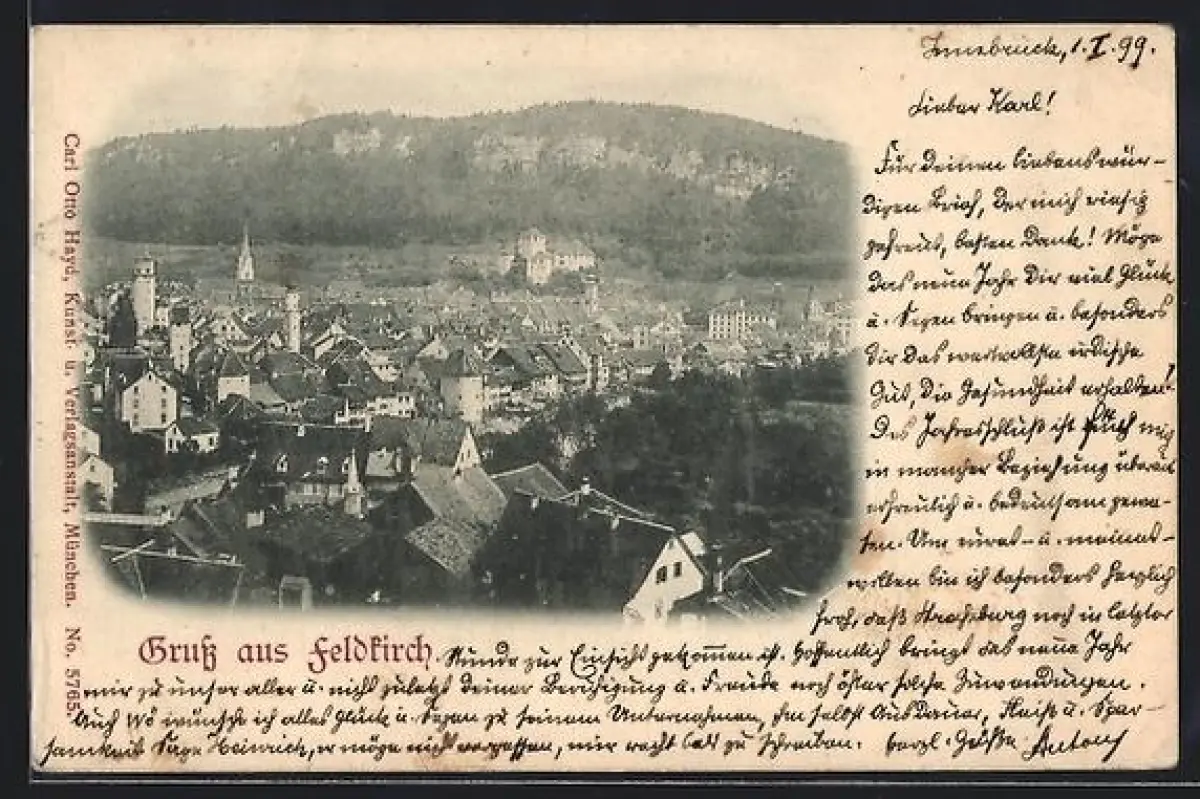 Carl Otto Hayd, Kunst- u. Verlagsanstalt, München. No. 5765.
Innsbruck, 1. I. 99.
Lieber Karl!
Für Deinen liebenswür-
digen Brief, der mich riesig
gefreut, besten Dank! Möge
das neue Jahr Dir viel Glück
u. Segen bringen u. besonders
Dir das wertvollste irdische
Gut, die Gesundheit erhalten!
Des Jahresschluß ist für mich
in mancher Beziehung überaus
erfreulich u. bedeutsam gewe-
sen. Um eurer- u. meinet-
willen bin ich besonders herzlich
froh, daß noch in letzter
Gruß aus Feldkirch
Stunde zur Einsicht gekommen ist. Hoffentlich bringt das neue Jahr
mir zu unser aller u. nicht zuletzt Deiner Beruhigung u. Freude noch öfter solche Zuwendungen.
Auch wünsche ich alles Glück u. Segen zu seinem Unternehmen, ihm selbst Ausdauer, Fleiß u. Spar-
samkeit. Sage Heinrich, er möge nicht vergessen, mir recht bald zu schreiben. Herzl. Grüße Anton